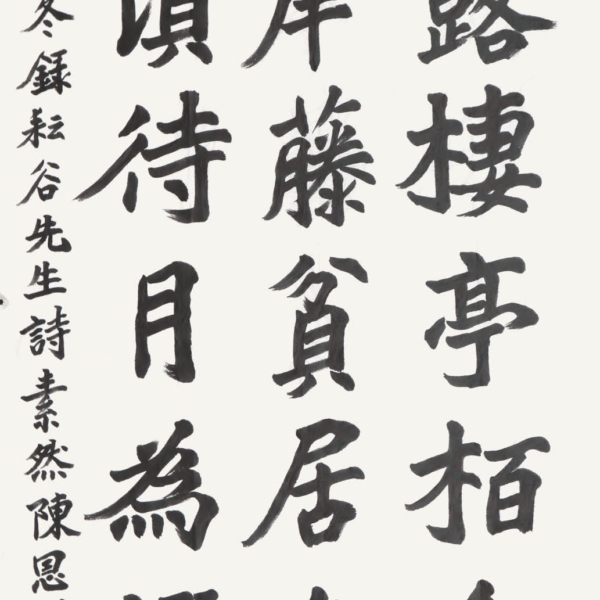 路棲亭栢
藤貧居
待月為
冬錄耘谷先生詩素然陳恩